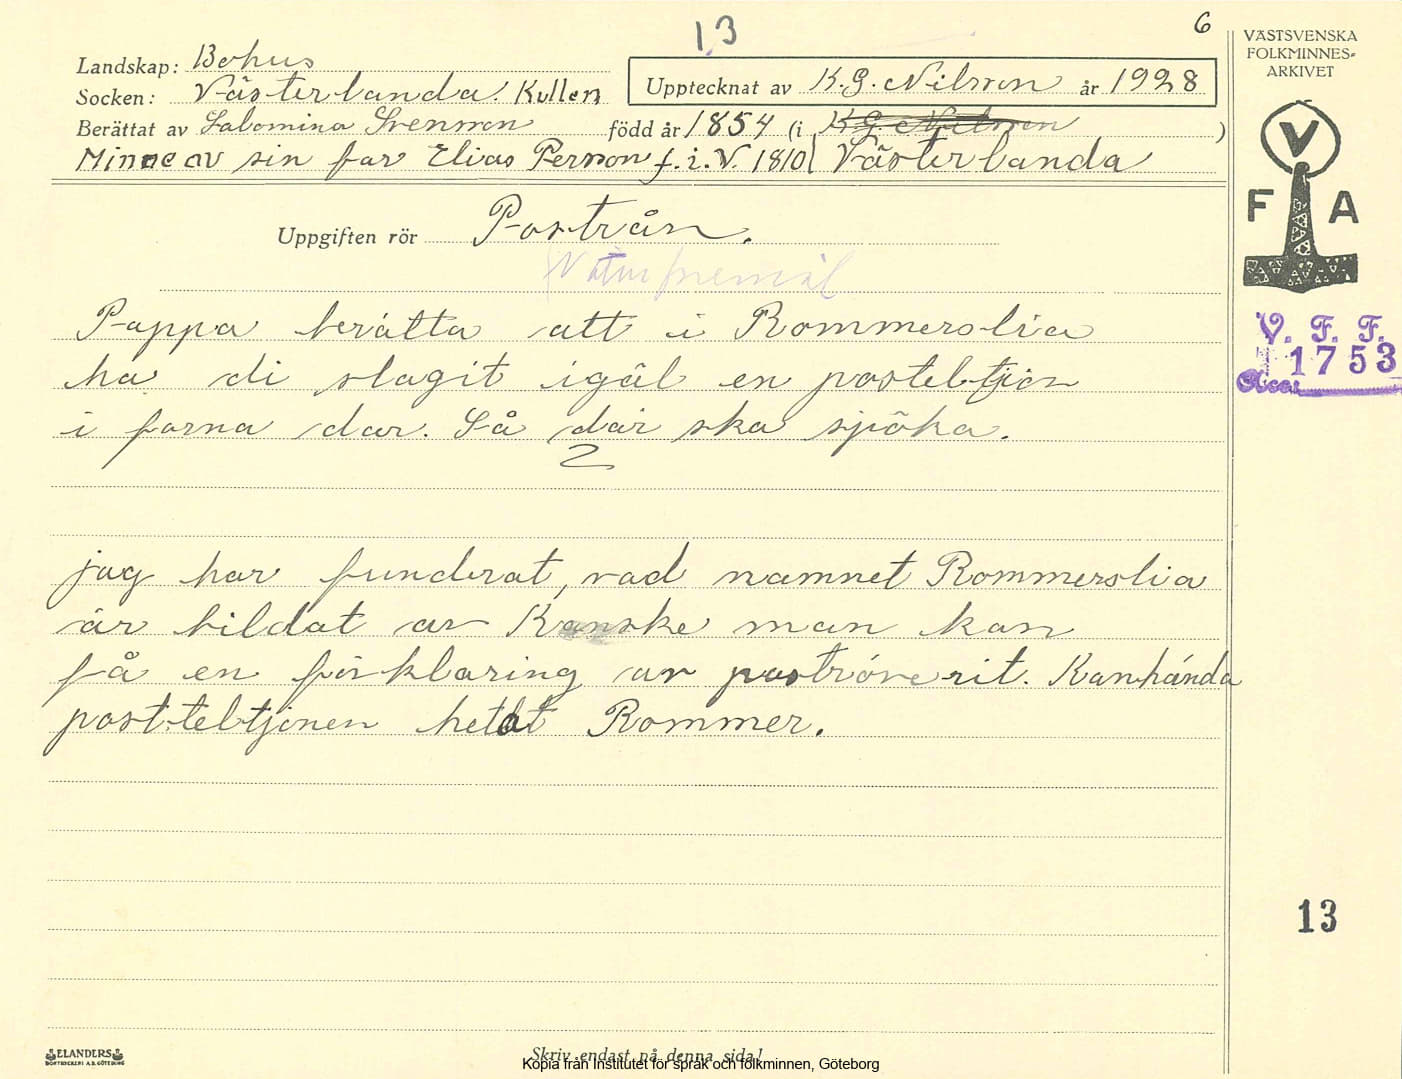 13
6
Landskap: Bohus
Socken: Västerlanda. Kullen
Upptecknat av K.G. Nilsson år 1928
Berättat av Salomina Svensson född år 1854 (i K.G. Nilsson )
Minne av sin far Elias Persson f. i. V. 1810 Västerlanda
Uppgiften rör Postrån.
Naturföremål
Pappa berätta att i Rommerslia
ha di slagit igäl en postebtjän
i forna dar. Så där ska sjöka.
jag har funderat, vad namnet Rommerslia
är bildat av Kanske man kan
få en förklaring av poströveriet. Kanhända
postebtjänen hetat Rommer.
VÄSTSVENSKA
FOLKMINNES-
ARKIVET
V
F A
V. F. F.
1753
Acc:
13
ELANDERS
BOKTRYCKERI A.B. GÖTEBORG
Skriv endast på denna sida!
Kopia från Institutet för språk och folkminnen, Göteborg